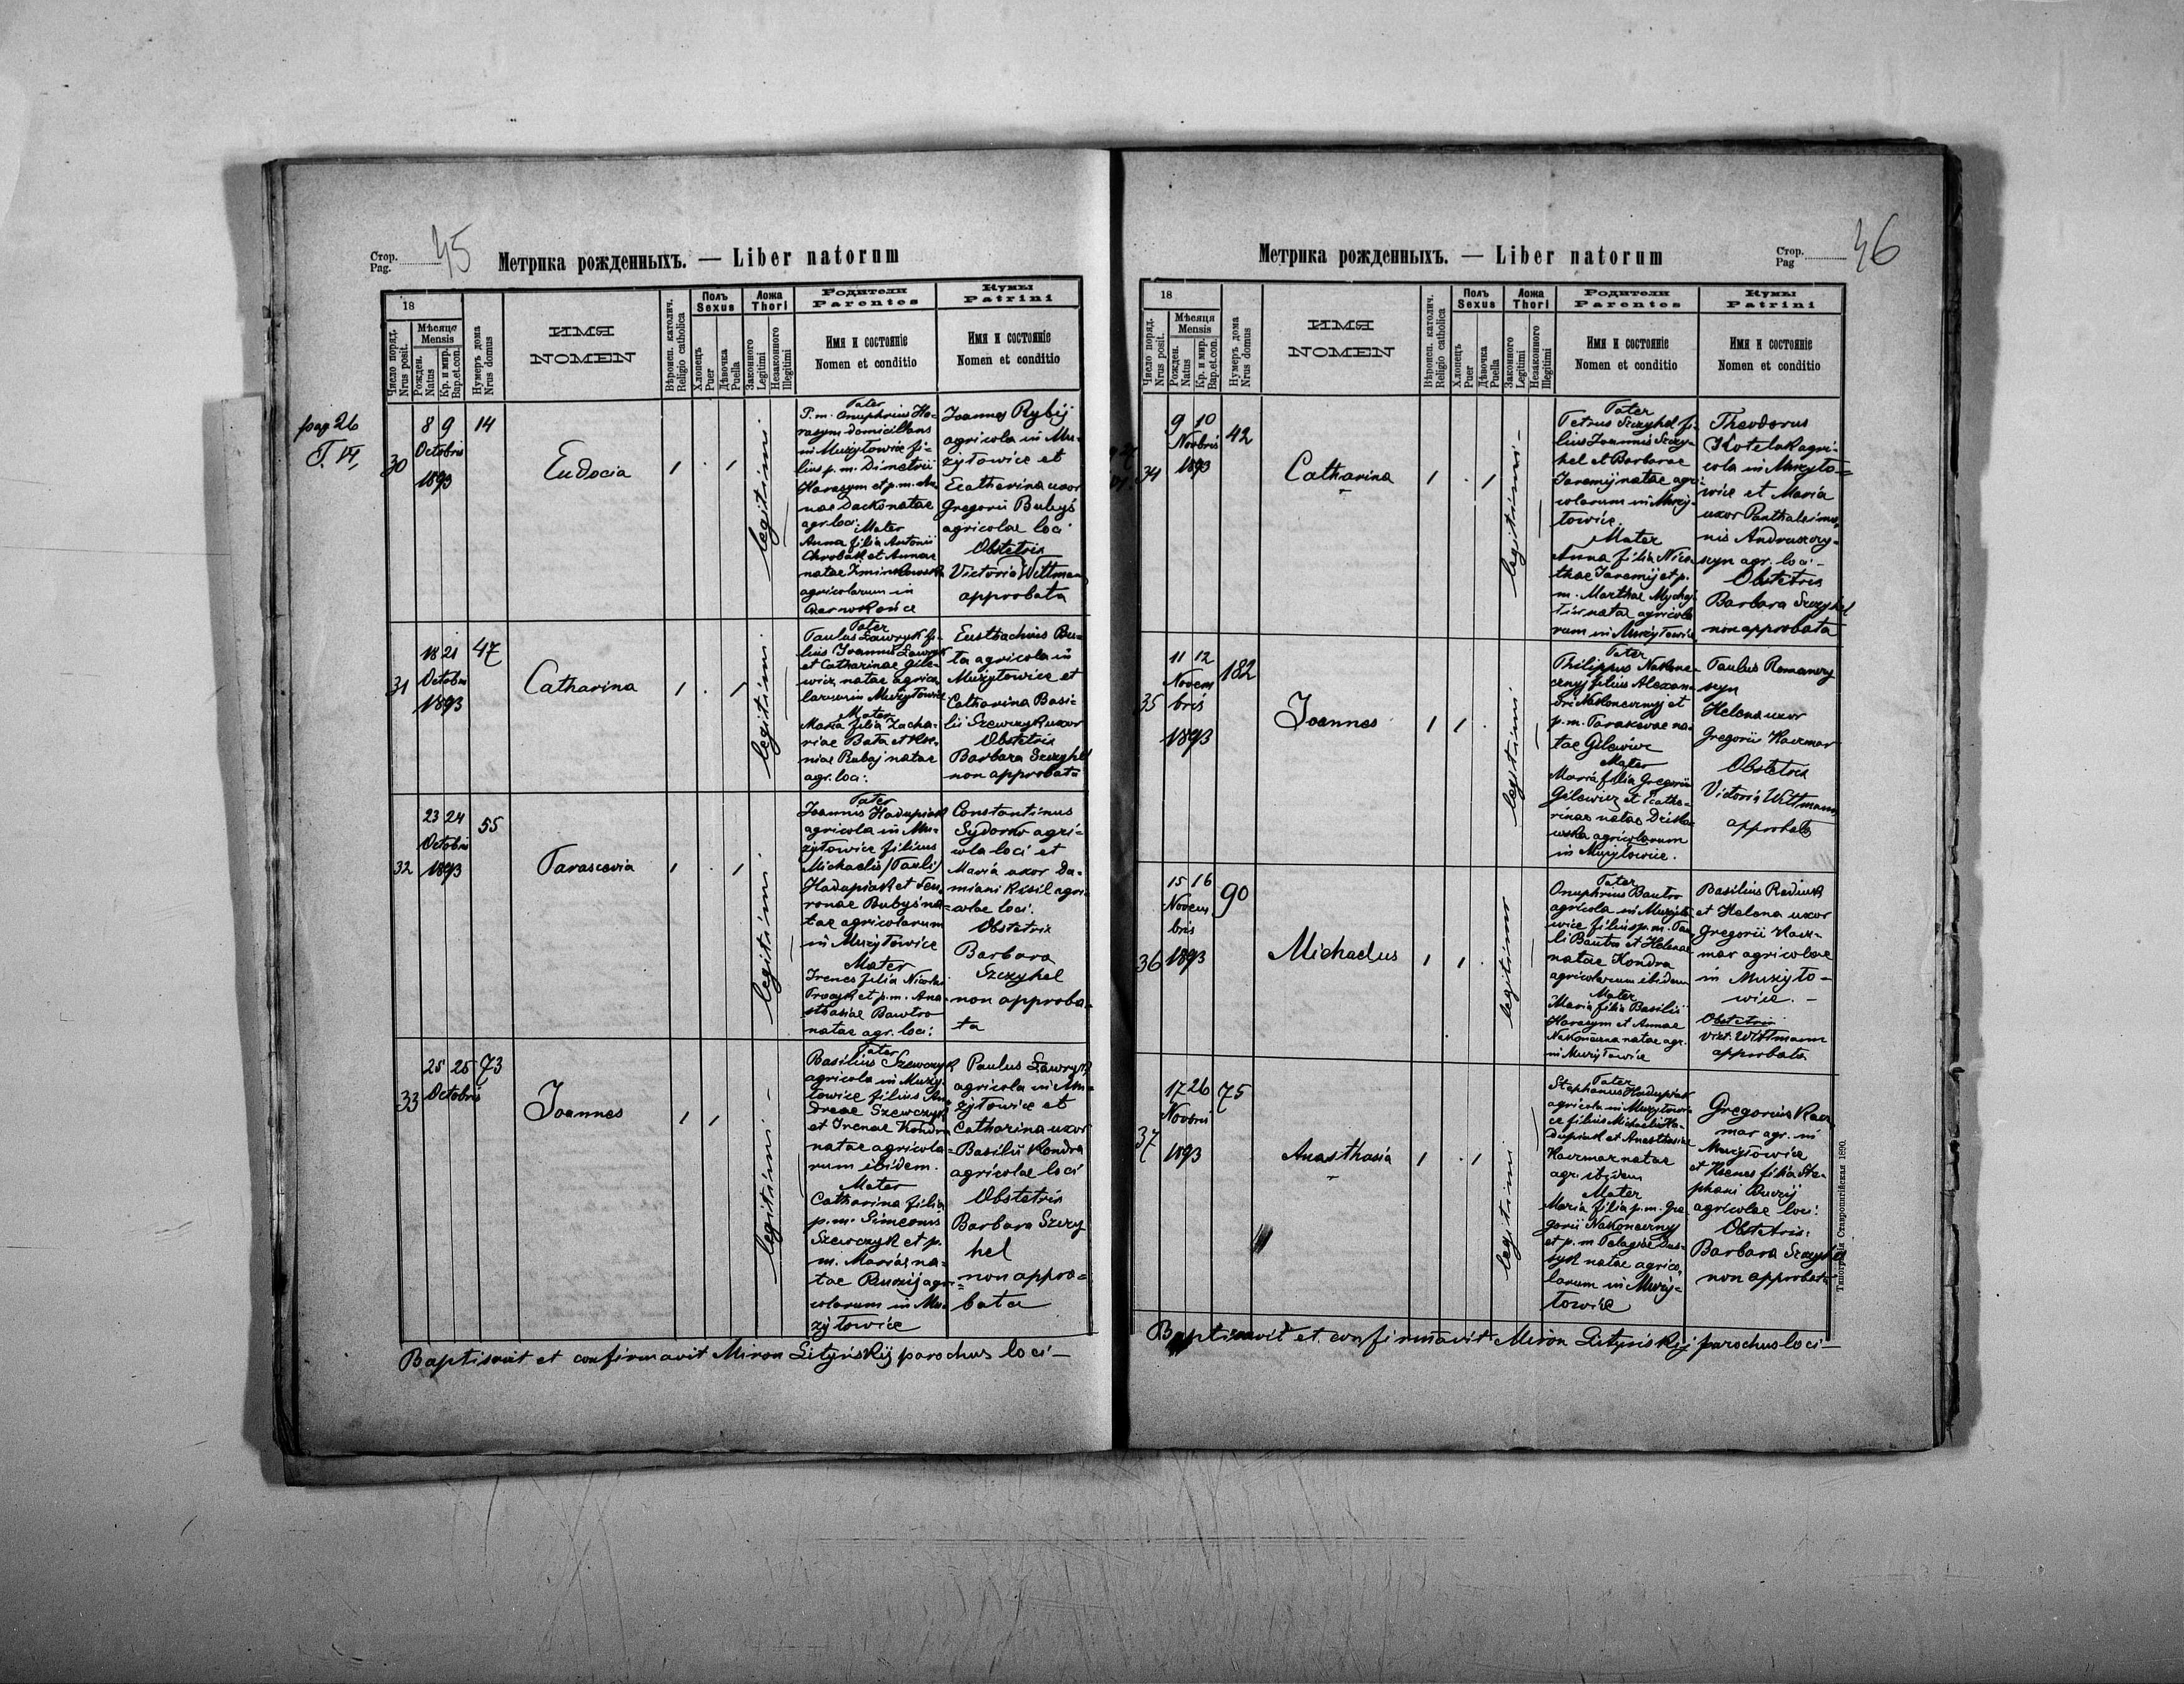 Стор.
Pag. 45
Метрика рожденныхъ. — Liber natorum
18
Число поряд.
Nrus posit.
Мѣсяцю
Mensis
Рожден.
Natus
Кр. и мир.
Bap.et.con.
Нумеръ дома
Nrus domus
ИМЯ
NOMEN
Вѣроисп. католич.
Religio catholica
Полъ
Sexus
Хлопецъ
Puer
Дѣвочка
Puella
Ложа
Thori
Законного
Legitimi
Незаконного
Illegitimi
Родители
Parentes
Имя и состояніе
Nomen et conditio
Кумы
Patrini
Имя и состояніе
Nomen et conditio
pag 26
T. VI,
30
8 9
Octobris
1893
14
Eudocia
1 . 1
legitimi
Pater
P. m. Onuphrius Ha-
rasym domicilians
in Mużyłowice fi-
lius p. m. Dimetrii
Harasym et p. m. An-
nae Dacko natae
agr. loci.
Mater
Anna filia Antonii
Chrobak et Annae
natae
agricolarum in
Joannes Rybij
agricola in Mu-
żyłowice et
Ecatherina uxor
Gregorii Bubyś
agricolae loci
Obstetrix
Victoria Wittmann
approbata
31
18 21
Octobris
1893
47
Catharina
1 . 1
legitimi
Pater
Paulus Ławryk fi-
lius Joannis Ławryk
et Catharinae Gile-
wicz natae agrico-
larum in Mużyłowice
Mater
Maria filia Zacha-
riae Bata et Xe-
niae Rubaj natae
agr. loci.
Eusthachius Bu-
ta agricola in
Mużyłowice et
Catharina Basi-
lii Szewczyk uxor
Obstetrix
Barbara Szczyhel
non approbata
32
23 24
Octobris
1893
55
Parascevia
1 . 1
legitimi
Pater
Joannis Hadupiak
agricola in Mu-
żyłowice filius
Michaelis (Pauli)
Hadupiak et Feu-
ronae Bubyś na-
tae agricolarum
in Mużyłowice
Mater
Irenes filia Nicolai
et p. m. Ana-
sthasiae Bawtro
natae agr. loci:
Constantinus
Sydorko agri-
cola loci et
Maria uxor Da-
miani Kisil agri-
colae loci.
Obstetrix
Barbara
Szczyhel
non approba-
ta
33
25 25
Octobris
73
Joannes
1 1
legitimi
Pater
Basilius Szewczyk
agricola in Muży-
łowice filius An-
dreae Szewczyk
et Irenae Kondra
natae agricola-
rum ibidem.
Mater
Catharina filia
p. m. Simeonis
Szewczyk et p.
m. Mariae na-
tae Ruczij agri-
colarum in Mu-
żyłowice
Paulus Ławryk
agricola in Mu-
żyłowice et
Catharina uxor
Basilii Kondra
agricolae loci
Obstetrix
Barbara Szczy
hel
non appro-
bata
Baptisavit et confirmavit Miron Lityńskij parochus loci —
Метрика рожденныхъ. — Liber natorum
Стор.
Pag 46
18
Число поряд.
Nrus posit.
Мѣсяця
Mensis
Рожден.
Natus
Кр. и мир.
Bap.et.con.
Нумеръ дома
Nrus domus
ИМЯ
NOMEN
Вѣроисп. католич.
Religio catholica
Полъ
Sexus
Хлопецъ
Puer
Дѣвочка
Puella
Ложа
Thori
Законного
Legitimi
Незаконного
Illegitimi
Родители
Parentes
Имя и состояніе
Nomen et conditio
Кумы
Patrini
Имя и состояніе
Nomen et conditio
34
9 10
Novbris
1893
42
Catharina
1 . 1
legitimi
Pater
Petrus Szczyhel fi-
lius Joannis Szczy-
hel et Barbarae
Jaremij natae agri-
colarum in Muży-
łowice.
Mater
Anna filia Nice-
thae Jaremij et p.
m. Marthae
natae agricola
rum in Mużyłowice
Theodorus
Kotelak agri-
cola in Mużyło-
wice et Maria
uxor Panthaleimo-
nis Andruszczy-
szyn agr. loci -
Obstetrix
Barbara Szczyhel
non approbata
35
11 12
Novem
bris
1893
182
Joannes
1 1
legitimi
Pater
Philippus Nakone-
cznyj filius Alexan-
dri Nakonecznyj et
p. m. Parasevae na-
tae Gilewicz
Mater
Maria filia Gregorii
Gilewicz et Ecathe-
rinae natae
agricolarum
in Mużyłowice.
Paulus Romanczy
szyn
Helena uxor
Gregorii Kaczmar
Obstetrix
Victoria Wittmann
approbata
36
15 16
Novem
bris
1893
90
Michaelus
1 1
legitimus
Pater
Onuphrius Bautro
agricola in Mużyło-
wice filius p. m. Pau-
li Bautro et Helenae
natae Kondra
agricolarum ibidem
Mater
Maria filia Basilii
Harasym et Annae
Nakoneczna natae agr.
in Mużyłowice
Basilius Rediuk
et Helena uxor
Gregorii Kacz-
mar agricolae
in Mużyło-
wice. -
Obstetrix
Vict. Wittmann
approbata
37
17 26
Novbris
1893
75
Anasthasia
1 . 1
legitimi
Pater
Stephanus Hadupiak
agricola in Mużyłowi-
ce filius Michaelis Ha-
dupiak et Anasthasiae
Kaczmar natae
agr. ibidem
Mater
Maria filia p. m. Gre
gorii Nakonecznyj
et p. m Pelagiae
natae agrico-
larum in Muży-
łowice
Gregorius Kacz
mar agr. in
Mużyłowice
et Xenes filia Ste-
phani Ruczij
agricolae loci:
Obstetrix:
Barbara Szczyhel
non approbata
Типографія Ставропигійская 1890.
Baptisavit et confirmavit Miron Lityńskij parochus loci —